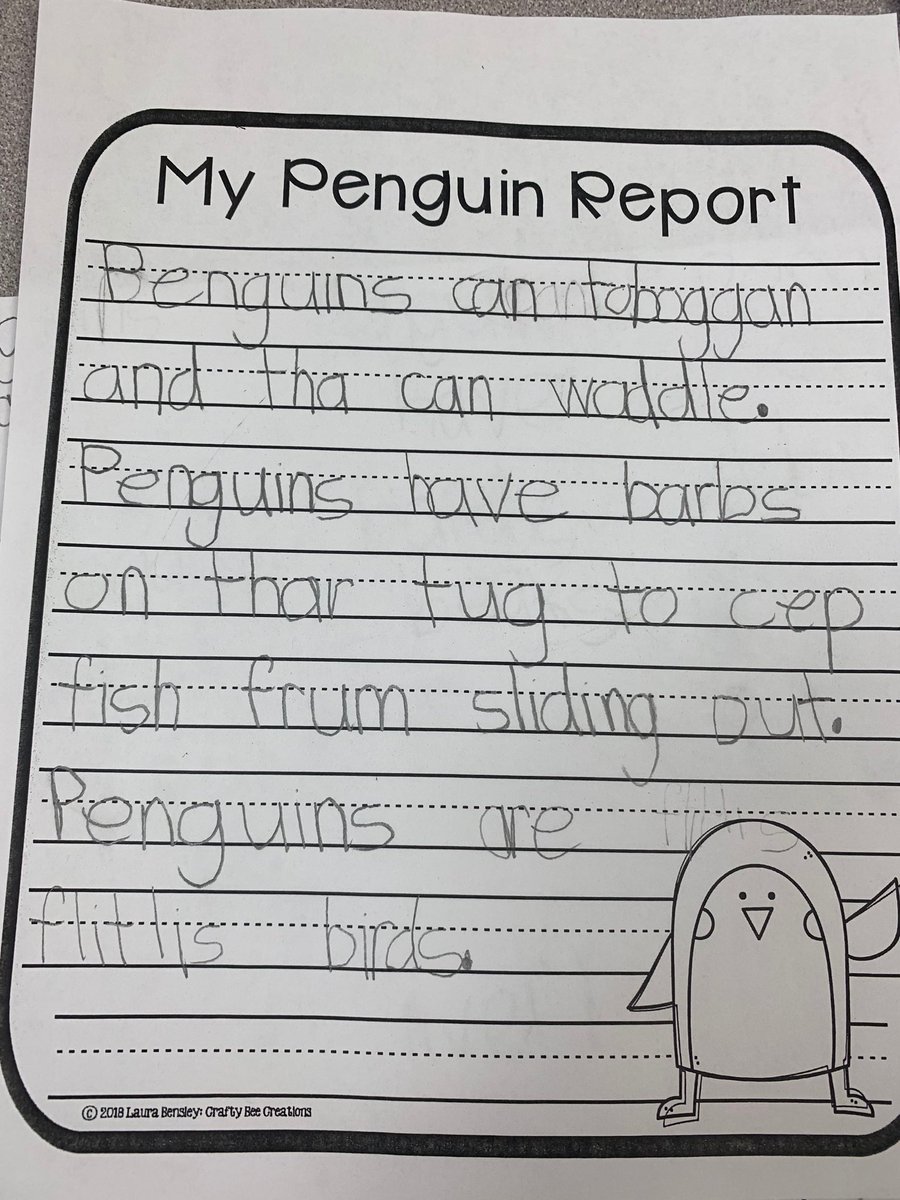 My Penguin Report
Penguins can toboggan
and tha can waddle.
Penguins have barbs
on thar tug to cep
fish frum sliding out.
Penguins are
flitlis birds.
© 2018 Laura Bensley: Crafty Bee Creations